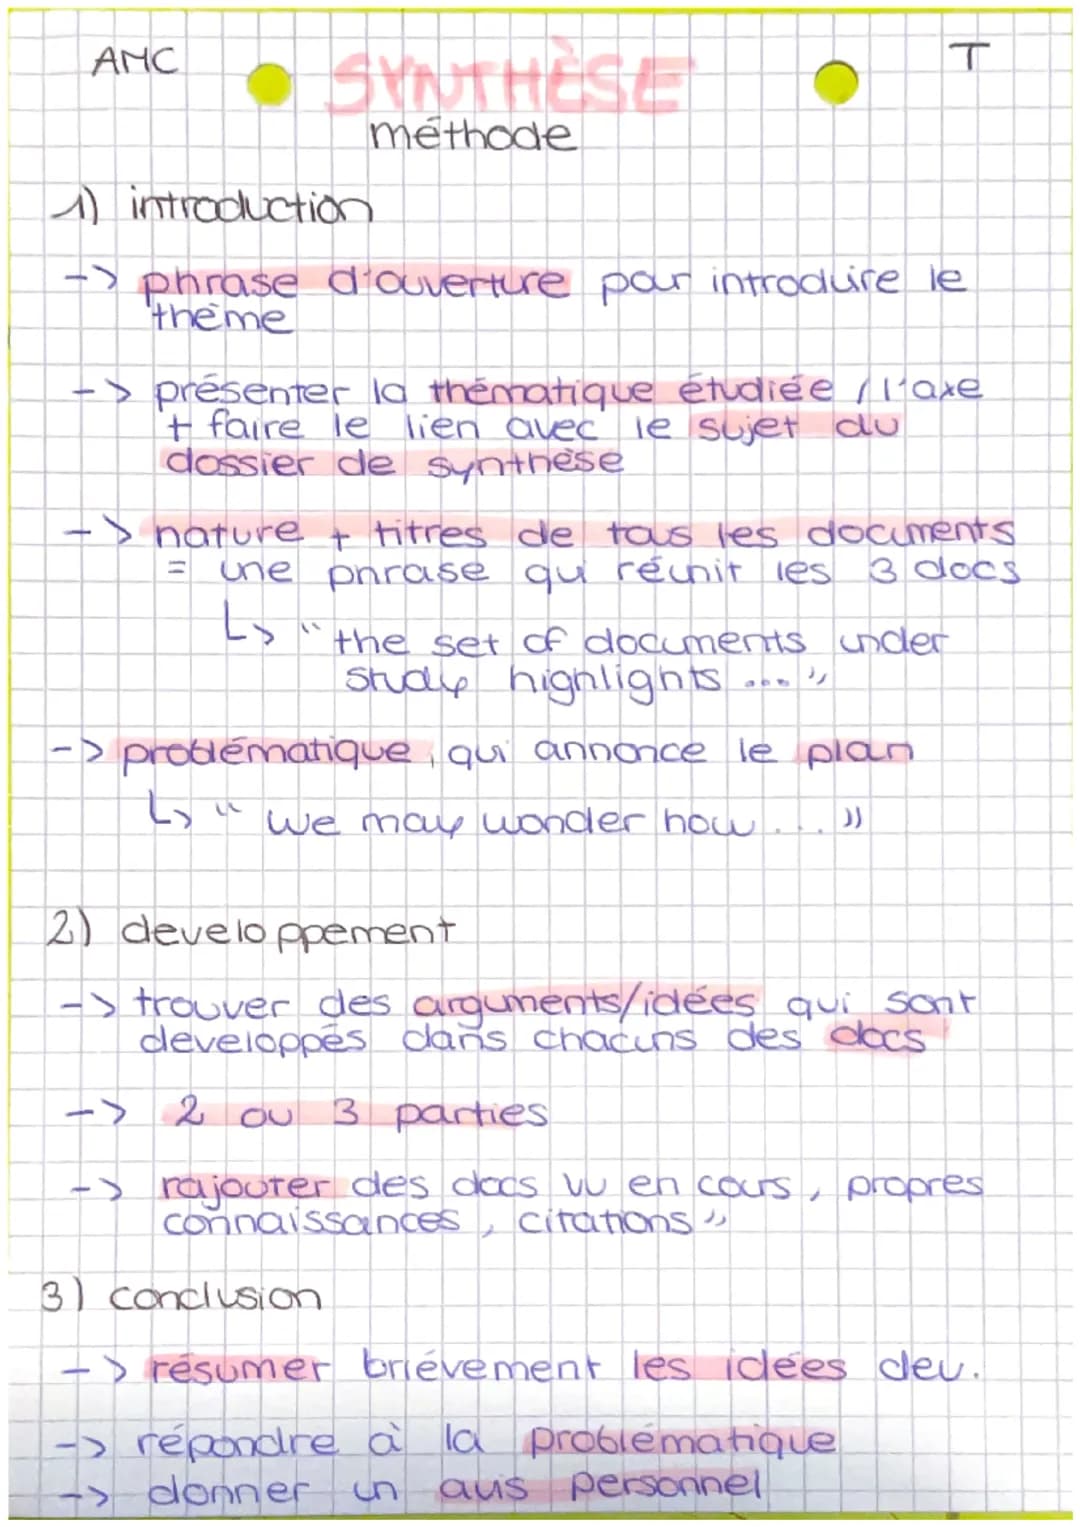 AMC
T
SYNTHÈSE
méthode
1) introduction
-> phrase d'ouverture pour introduire le
thème
-> présenter la thématique étudiée / l'axe
+ faire le lien avec le sujet du
dossier de synthèse
-> nature + titres de tous les documents
= une phrase qui réunit les 3 docs
↳ "the set of documents under
study highlights ..."
-> problématique, qui annonce le plan
↳ "We may wonder how ..."
2) developpement
-> trouver des arguments/idées qui sont
developpés dans chacuns des docs
-> 2 ou 3 parties
-> rajouter des docs vu en cours, propres
connaissances, citations "
3) conclusion
-> résumer briévement les idées dev.
-> répondre à la problématique
-> donner un avis personnel